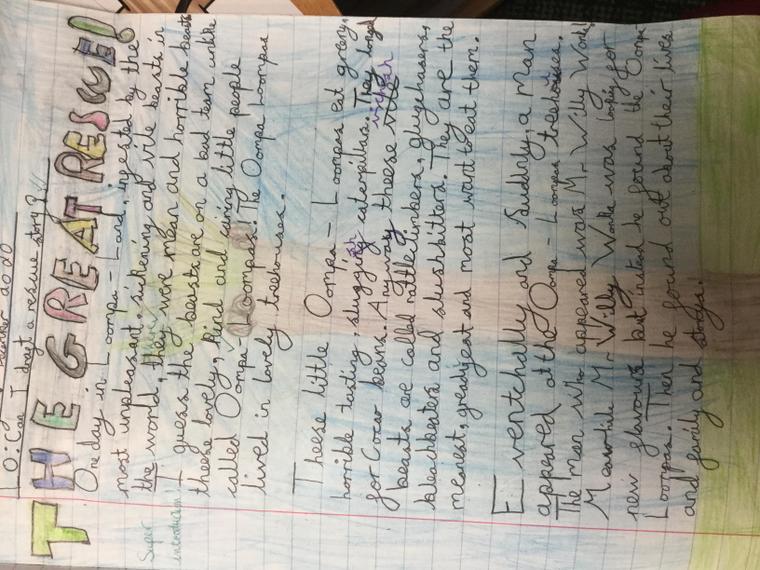 2020
LO: Can I draft a rescue story?
THE GREAT RESCUE!
One day in Loompa - Land, ingested by the
most unpleasant, sickening and vile beasts in
the world, they were mean and horrible beasts
I guess the beasts are on a bad team unlike
theese lovely, kind and caring little people
called Oompa - Loompas. The Oompa Loompas
lived in lovely treehouses.
Super
introduction!
Theese little Oompa - Loompas eat greeny,
horrible tasting, sluggy caterpillas. They longed
for Coco beans. Anyway theese vile
beasts are called rattleclinbers, glughasers,
blackbeaters and slushbitters. They are the
meanest, greadiyest and most want to eat them.
Eventchally and suddinly, a man
appeared at the Oompa - Loompas treehouses.
The man who appeared was Mr Willy Wonka
Meanwhile Mr Willy Wonka was looking for
new flavours but insted he found the Oompa
Loompas. Then he found out about their lives
and family and storys.